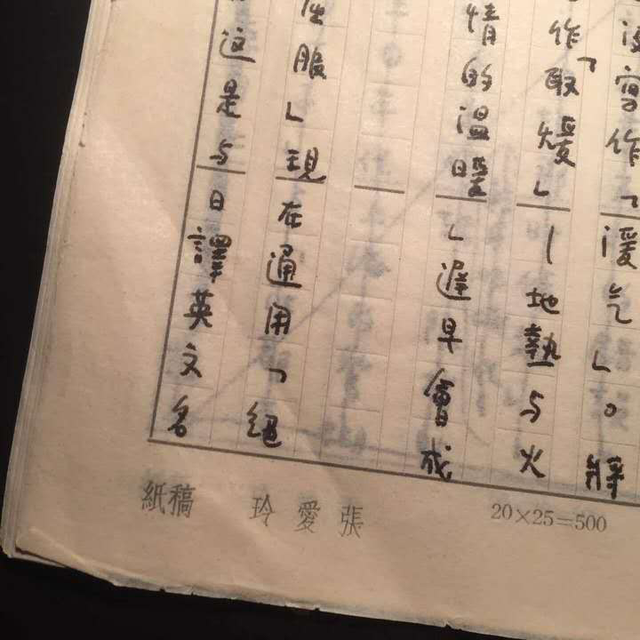 寫作「湲气」。
作「取煖」—地熱与火
情的溫暖」遲早會成
服」現在通用「絕
這是与日譯英文名
紙稿 玲愛張 20×25=500